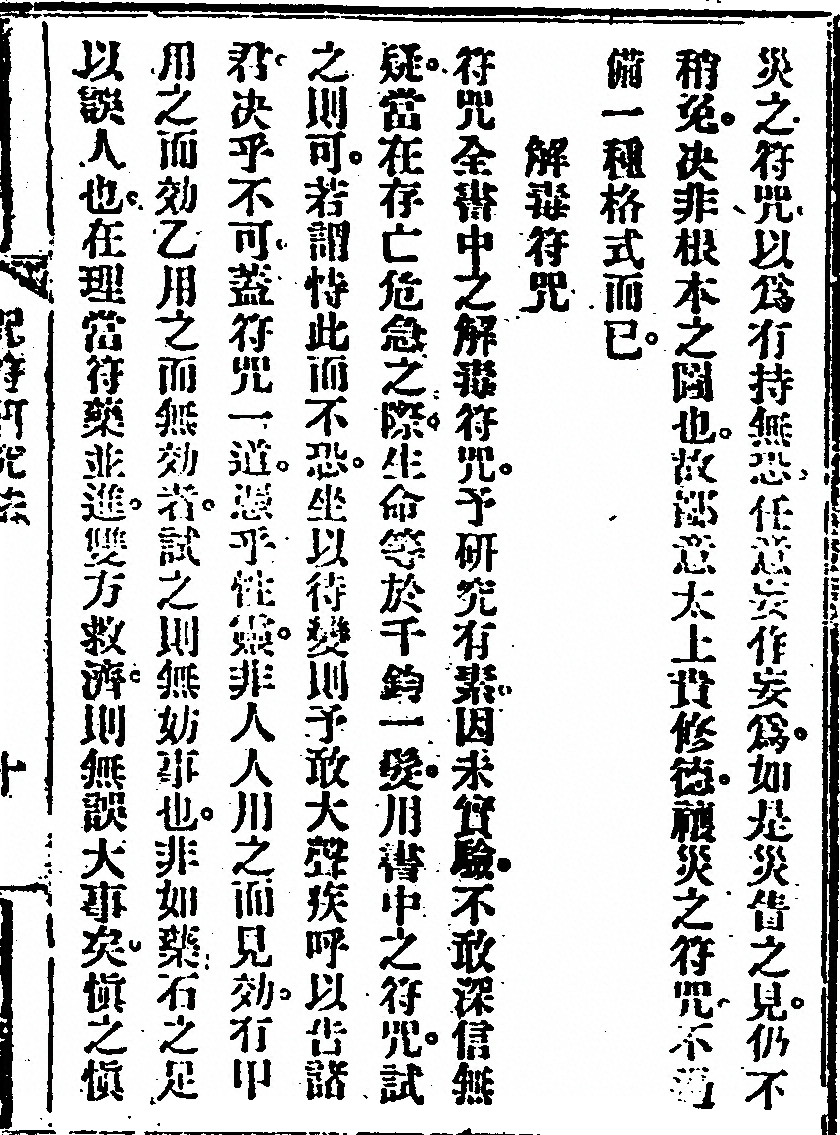 災之符咒。以爲有持無恐。任意妄作妄爲。如是災眚之見。仍不
稍免。决非根本之圖也。故鄙意太上貴修德。禳災之符咒。不過
備一種格式而已。
解毒符咒
符咒全書中之解毒符咒。予研究有素。因未實驗。不敢深信無
疑。當在存亡危急之際。生命等於千鈞一髮。用書中之符咒。試
之則可。若謂恃此而不恐。坐以待變。則予敢大聲疾呼以告諸
君。决乎不可。蓋符咒一道。憑乎性靈。非人人用之而見効。有甲
用之而効乙用之而無効者。試之則無妨事也。非如藥石之足
以誤人也。在理當符藥並進。雙方救濟。則無誤大事矣。愼之愼
咒符研究法
十